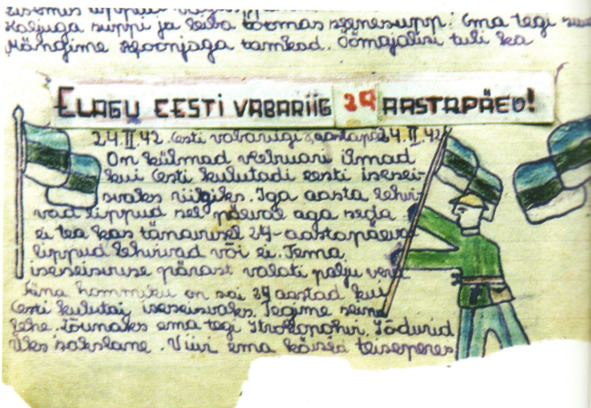 suppi ja leiba toomas seenesupp. Ema tegi
Mängime Sloonjaga tamkad. Öömajalisi tuli ka
ELAGU EESTI VABARIIG 24 AASTAPÄEV!
24.II.42. Eesti vabariigi aastapä 24.II.42
On külmad veebruari ilmad
kui Eesti kulutadi eesti isesei-
svaks riigiks. Iga aasta lehvi-
vad lippud sel päeval aga seda
ei tea kas tämavusel 24-aastapäeva
lippud lehvivad või ei. Tema
iseseisvuse pärast valati palju verd
Täna hommiku on sai 24 aastad kui
Eesti kulutaj iseseisvaks. Tegime seina
lehe. Lõunaks ema tegi Jõdurid
üks sakslane. Viivi ema käisid teiseperes